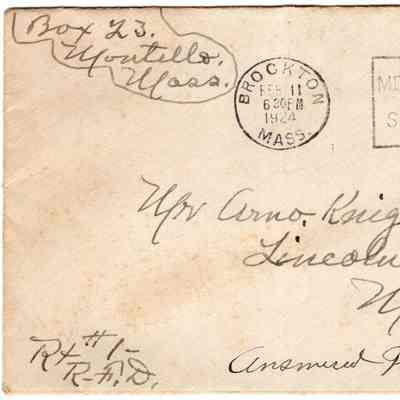 Box 23.
Montello.
Mass.
BROCKTON
FEB 11
6 30 PM
1924
MASS.
MI
S
Mr Arno. Knig
Lincoln
M
Rt #1-
R-F.D.
Answered F